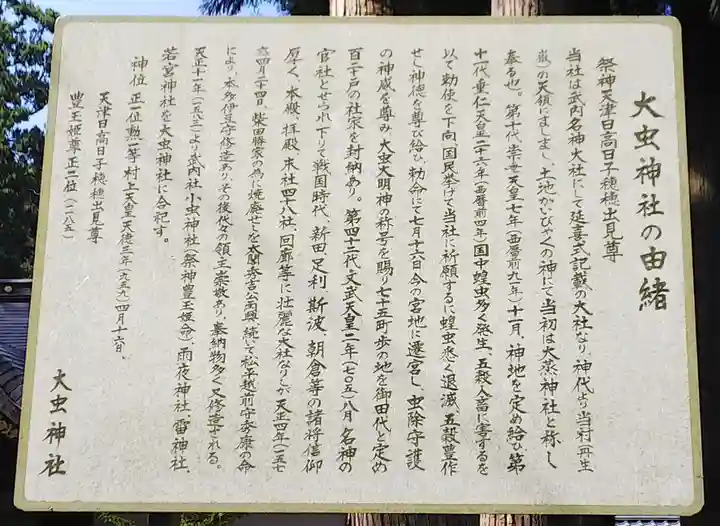 大虫神社の由緒
祭神天津日高日子穂穂出見尊
当社は武内名神大社にして延喜式記載の大社なり、神代より当村丹生
嶽)の天嶺にましまし、土地かいびゃくの神にて当初は大蒸神社と称し
奉る也。第十代崇世天皇七年(西暦前九年)十一月、神地を定め給ひ第
十一代垂仁天皇二十六年(西暦前四年)国中蝗虫多く発生、五穀人畜に害するを
以て勅使を下向、国民挙げて当社に祈願するに蝗虫悉く退滅、五穀豊作
せし神徳を尊び給ひ勅命にて七月十六日今の宮地に遷宮し、虫除守護
の神威を尊み大虫大明神の称号を賜り七十五町歩の地を御田代と定め
百二十戸の社家を封納あり。第四十二代文武天皇二年(七〇五)八月、名神の
官社とせられ下りて戦国時代、新田、足利、斯波、朝倉等の諸将信仰
厚く、本殿、拝殿、末社四十八社、回廊等に壮麗な大社なりしが天正四年(一五七
六)四月二十四日、柴田勝家の為に焼廃せしを太閤秀吉公再興、続いて松平越前守秀康の命
により、本多伊豆守修造あり、その後代々の領主崇敬あり、奉納物多く又修造される。
天正十一年(一五八三)より式内社小虫神社(祭神豊玉姫命)、雨夜神社、雷神社、
若宮神社を大虫神社に合祀す。
神位 正一位勲一等 村上天皇天徳三年(九五九)四月十六日、
天津日高日子穂穂出見尊
豊玉姫尊正二位(一二八五)
大虫神社